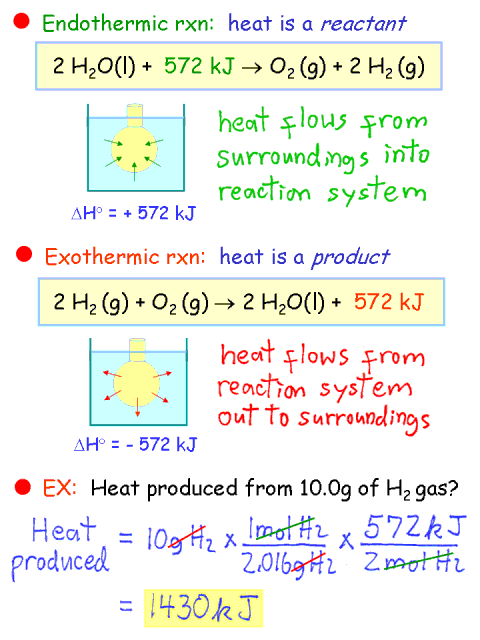 Endothermic rxn: heat is a reactant
2 H₂O(l) + 572 kJ → O₂ (g) + 2 H₂ (g)
heat flows from
surroundings into
reaction system
ΔH° = + 572 kJ
Exothermic rxn: heat is a product
2 H₂ (g) + O₂ (g) → 2 H₂O(l) + 572 kJ
heat flows from
reaction system
out to surroundings
ΔH° = - 572 kJ
EX: Heat produced from 10.0g of H₂ gas?
Heat produced = 10g H₂ x 1mol H₂ / 2.016g H₂ x 572kJ / 2mol H₂
= 1430kJ